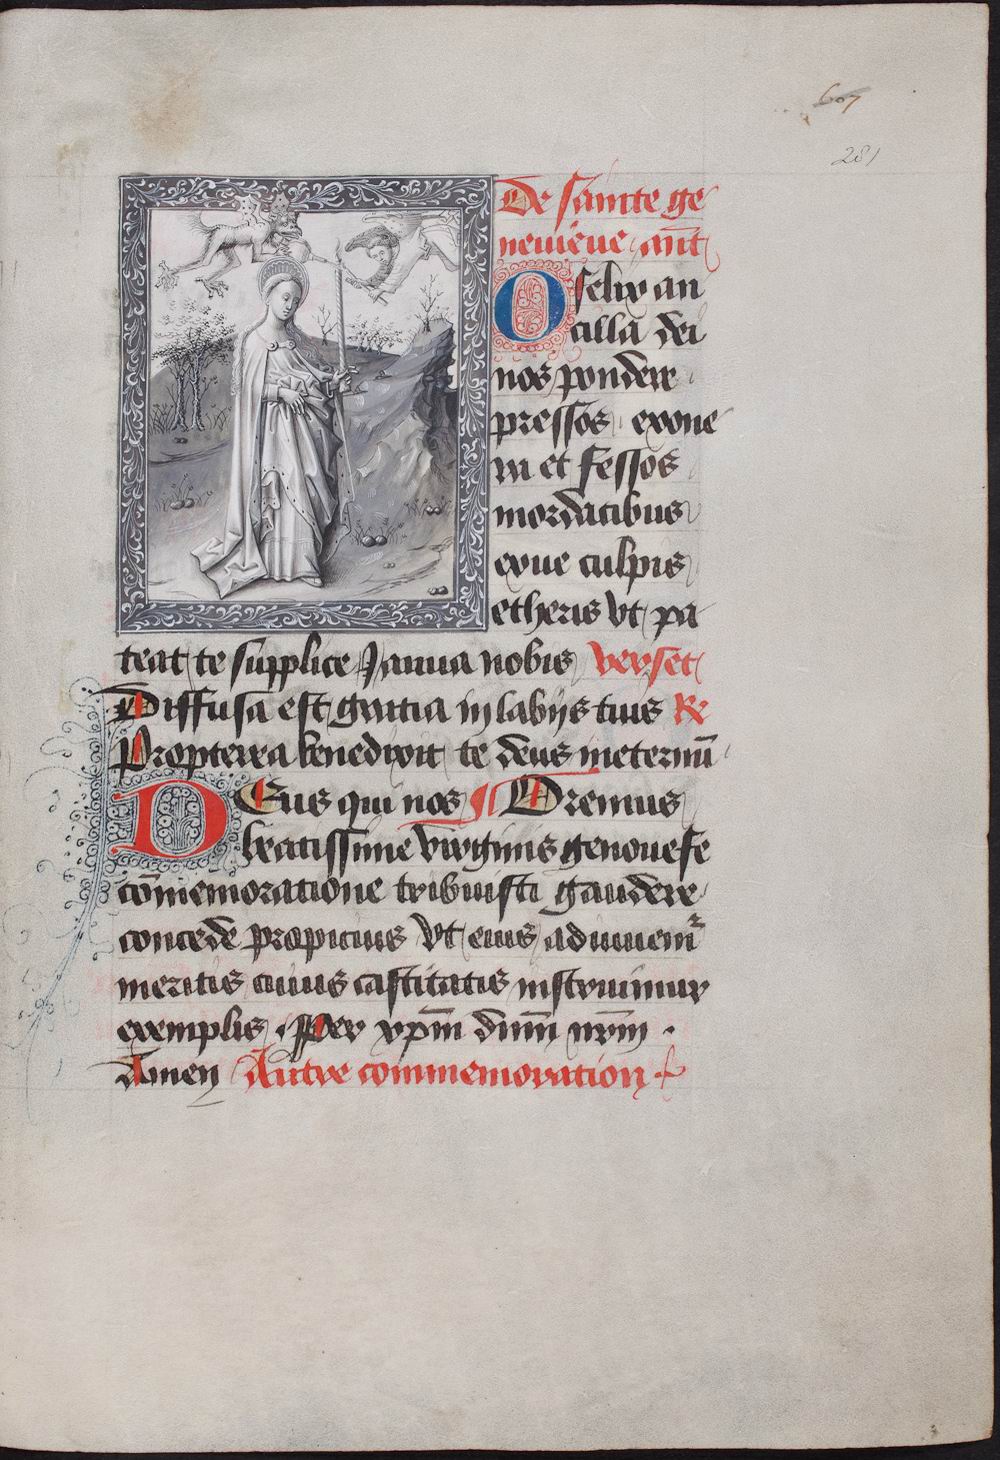 607
281
De sainte ge
neuieue ant
O felix an
cilla dei
nos pondere
pressos exone
ra et fessos
mordacibus
exue culpis
etheris vt pa
teat te supplice Janua nobis verset
Diffusa est gracia in labijs tuis Re
Propterea benedixit te deus ineternu̅
DEus qui nos Oremus
beatissime virginis genouefe
co̅memoratione tribuisti gaudere
concede propicius Vt eius adiuuem
meritis cuius castitatis instruimur
exemplis . Per xp̅m dn̅m nr̅m .
Amen Autre commemoration